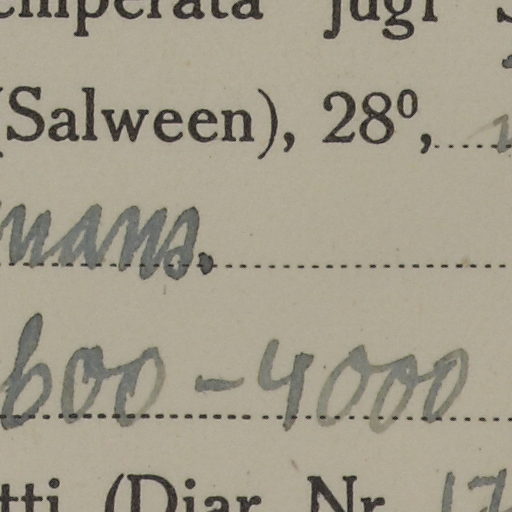 emperata jugi S
(Salween), 28⁰,
mans.
600-4000
tti (Diar. Nr. 17